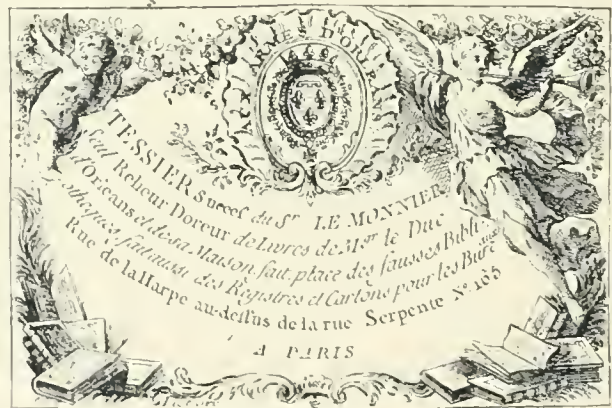 AUX ARMES D'ORLEANS
TESSIER Succes.r du S.r LE MONNIER
seul Relieur Doreur de Livres de Mgr le Duc
d'Orleans et de sa Maison, fait, place des fausses Bibli
otheques, fait aussi des Registres et Cartons pour les Bure
aux
Rue de la Harpe au-dessus de la rue Serpente N.o 165
A PARIS